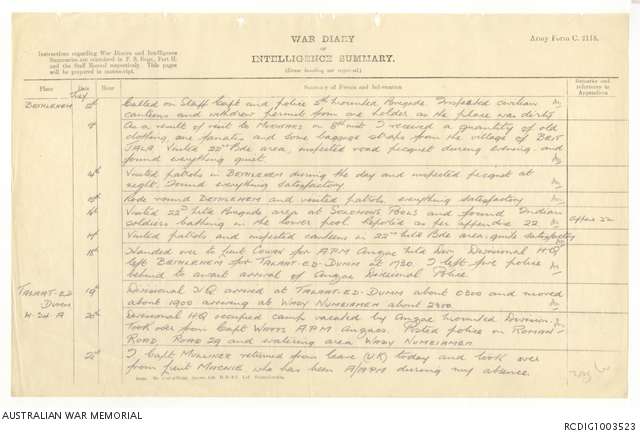 WAR DIARY
OF
INTELLIGENCE SUMMARY.
(Erase heading not required).
Army Form C. 2118.
Instructions regarding War Diaries and Intelligence
Summaries are contained in F. S. Regs., Part II.
and the Staff Manual respectively. Title pages
will be prepared in manuscript.
Place Date Hour Summary of Events and Information Remarks and references to Appendices
May
BETHLEHEM Called on Staff Capt and police 5th Mounted Brigade. Inspected civilian
canteens and withdrew permit from one holder as the place was dirty
As a result of visit to on 8th inst I received a quantity of old
clothing, one fanatis and some baggage straps from the village of BEIT
JALA. Visited 22nd Bde area, inspected road picquet during evening and
found everything quiet.
Visited patrols in BETHLEHEM during the day and inspected picquet at
night. Found everything satisfactory
Rode round BETHLEHEM and visited patrols, everything satisfactory
Visited 22nd Brigade area at SOLOMONS POOLS and found Indian
soldiers bathing in the lower pool. Reported as per appendix 22. Appx 22
Visited patrols and inspected canteens in 22nd Bde area; quite satisfactory
18th Handed over to Lieut COWAN for A.P.M Anzac Mtd Div. Divisional HQ
left BETHLEHEM for TALAAT-ED-DUMM at 1930. I left five police
behind to await arrival of Anzac Divisional Police.
TALAAT-ED 19th Divisional HQ arrived at TALAAT-ED-DUMM about 0300 and moved
DUMM about 1900 arriving at WADY NUMEIAMEH about 2300.
20th Divisional HQ occupied camp vacated by Anzac Mounted Division.
Took over from Capt A.P.M Anzacs. Posted police on ROMAN
ROAD, ROAD 29 and watering area WADY NUMEIAMEH
I Capt returned from leave (UK) today and took over
from Lieut who has been A/APM during my absence.
AUSTRALIAN WAR MEMORIAL
RCDIG1003523